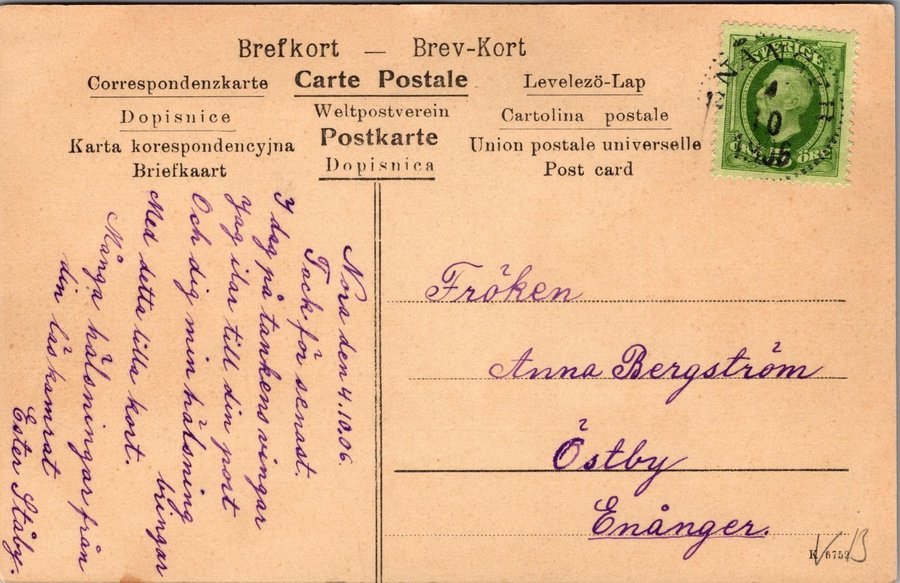 Brefkort — Brev-Kort
Correspondenzkarte Carte Postale Levelezö-Lap
Dopisnice Weltpostverein Cartolina postale
Karta korespondencyjna Postkarte Union postale universelle
Briefkaart Dopisnica Post card
SVERIGE
ÖRE
ENÅNGER
4
10
1906
Nora den 4.10.06.
Tack för senast.
I dag på tankens vingar
Jag ilar till din port
Och dig min hälsning
bringar
Med detta lilla kort.
Många hälsningar från
din läskamrat
Ester Ståby.
Fröken
Anna Bergström
Östby
Enånger.
K. 6752